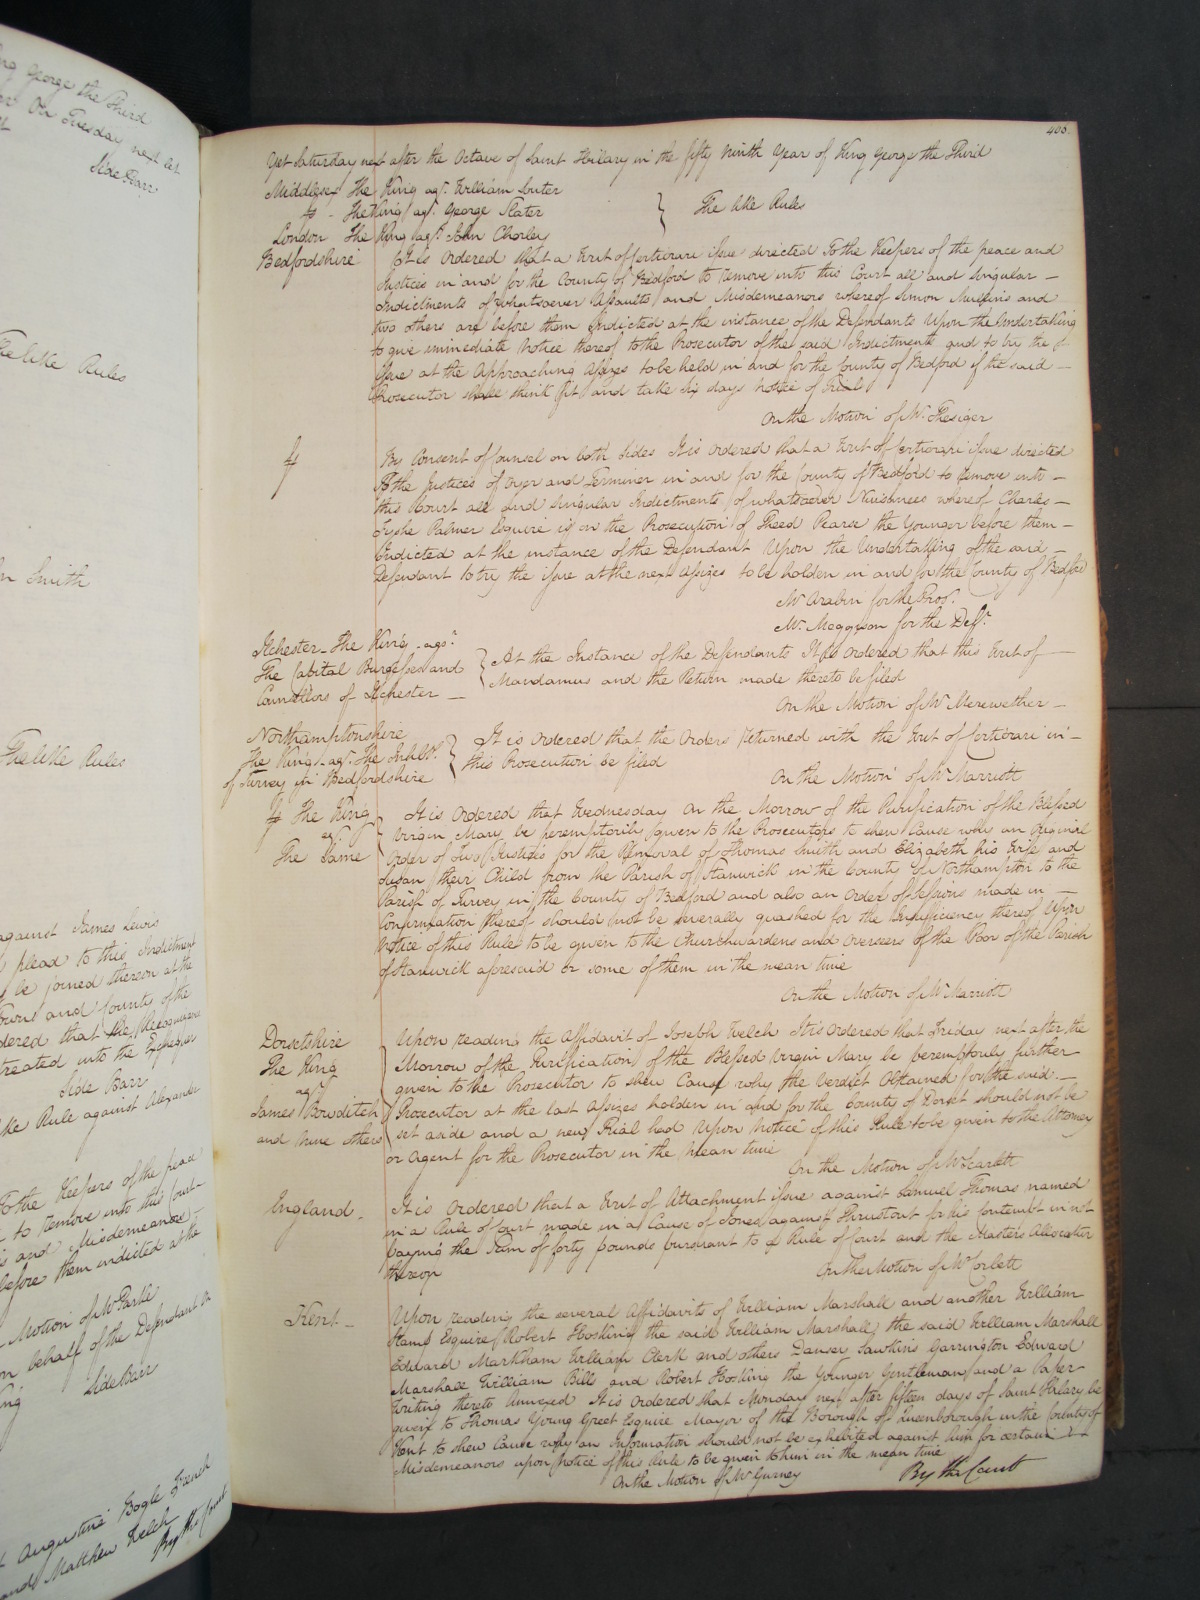 ng George the Third
or On Tuesday next let
Side Barr
The like Rules
n Smith
The like Rules
against James Lewis
plead to this Indictment
be joined thereon at the
Town and County of the
dered that the Recognizance
treated into the Exchequer
Side Barr
like Rule against Alexander
To the Keepers of the peace
to remove into this Court
and Misdemeanors
before them indicted at the
Motion of Mr. Parke
on behalf of the Defendant
Side Barr
Augustine Bogle French
and Matthew Welch
By the Court
403.
Yet Saturday next after the Octave of Saint Hilary in the fifty ninth Year of King George the Third
Middlesex The King agt. William Souter
ff - The King agt. George Slater
The like Rules
London The King agt. John Charles
Bedfordshire It is Ordered that a Writ of Certiorari issue directed To the Keepers of the peace and
Justices in and for the County of Bedford to remove into this Court all and singular –
Indictments of whatsoever Assaults and Misdemeanors whereof Simon Mussins and
two others are before them Indicted at the instance of the Defendants Upon the Undertaking
to give immediate Notice thereof to the Prosecutor of the said Indictments and to try the
Issue at the Approaching Assizes to be held in and for the County of Bedford if the said –
Prosecutor shall think fit and take six days Notice of Trial
On the Motion of Mr. Thesiger
ff By Consent of Counsel on both Sides It is Ordered that a Writ of Certiorari issue directed
To the Justices of Oyer and Terminer in and for the County of Bedford to Remove into –
this Court all and singular Indictments of whatsoever Nuisances whereof Charles –
Fyshe Palmer Esquire is on the Prosecution of Theed Pearse the Younger before them –
Indicted at the instance of the Defendant Upon the Undertaking of the said –
Defendant to try the issue at the next Assizes to be holden in and for the County of Bedford
Mr. Arabin for the Pros.
Mr. Meggison for the Deft.
Ilchester – The King – agst.
The Capital Burgesses and
Councillors of Ilchester –
At the Instance of the Defendants It is Ordered that this Writ of –
Mandamus and the Return made thereto be filed
On the Motion of Mr. Merewether –
Northamptonshire
The King – agt. The Inhabts.
of Turvey in Bedfordshire
It is Ordered that the Orders Returned with the Writ of Certiorari in –
this Prosecution be filed
On the Motion of Mr. Marriott
ff The King
agt
The Same
It is Ordered that Wednesday on the Morrow of the Purification of the Blessed
Virgin Mary be peremptorily given to the Prosecutors to shew Cause why an Original
Order of Two Justices for the Removal of Thomas Smith and Elizabeth his Wife and
Susan their Child from the Parish of Stanwick in the County of Northampton to the
Parish of Turvey in the County of Bedford and also an Order of Sessions made in –
Confirmation thereof should not be severally quashed for the Insufficiency thereof Upon
Notice of this Rule to be given to the Churchwardens and Overseers of the Poor of the Parish
of Stanwick aforesaid or some of them in the mean time
On the Motion of Mr. Marriott
Dorsetshire
The King
agt
James Bowditch
and nine others
Upon reading the Affidavit of Joseph Welch It is Ordered that Friday next after the
Morrow of the Purification of the Blessed Virgin Mary be peremptorily further
given to the Prosecutor to shew Cause why the Verdict Obtained for the said –
Prosecutor at the last Assizes holden in and for the County of Dorset should not be
set aside and a new Trial had Upon Notice of this Rule to be given to the Attorney
or Agent for the Prosecutor in the mean time
On the Motion of Mr. Scarlett
England – It is Ordered that a Writ of Attachment issue against Samuel Thomas named
in a Rule of Court made in a Cause of Jones against Thrustout for his Contempt in not
paying the Sum of forty pounds pursuant to a Rule of Court and the Masters Allocatur
thereon
On the Motion of Mr. Corlett
Kent – Upon reading the several Affidavits of William Marshall and another William
Stamp Esquire Robert Hosking the said William Marshall the said William Marshall
Edward Markham William Clerk and others Danser Sawkins Garrington Edward
Marshall William Bills and Robert Hosking the Younger Gentleman and a Paper
Writing thereto Annexed It is Ordered that Monday next after fifteen days of Saint Hilary be
given to Thomas Young Greet Esquire Mayor of the Borough of Queenborough in the County of
Kent to shew Cause why an Information should not be exhibited against him for certain
Misdemeanors upon Notice of this Rule to be given to him in the mean time
On the Motion of Mr. Gurney
By the Court